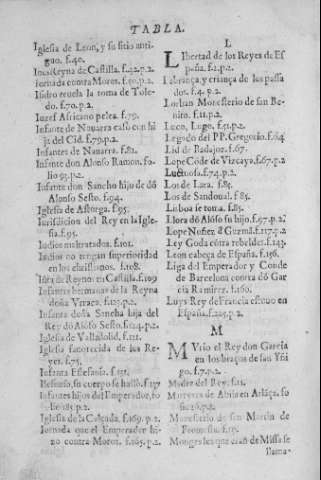 TABLA.
Iglesia de Leon, y su sitio anti-
guo. f.40.
Ines Reyna de Castilla. f.42.p.2.
Jornada contra Moros. f.50.p.2.
Isidro reuela la toma de Tole-
do. f.70.p.2.
Iuzef Africano pelea. f.79.
Infante de Nauarra casò con hi
ja del Cid. f.79.p.2.
Infantes de Nauarra. f.81.
Infante don Alonso Ramon. fo-
lio 93.p.2.
Infante don Sancho hijo de dõ
Alonso Sesto. f.94.
Iglesia de Astorga. f.95.
Iurisdicion del Rey en la Igle-
sia. f.95.
Iudios maltratados. f.101.
Iudios no tengan superioridad
en los christianos. f.108.
Iũta de Reynos en Castilla. f.109
Infantas hermanas de la Reyna
doña Vrraca. f.123.p.2.
Infanta doña Sancha hija del
Rey dõ Alõso Sesto. f.124.p.2.
Iglesia de Valladolid. f.131.
Iglesia fauorecida de los Re-
yes. f.75.
Infanta Estefania. f.
su cuerpo se hallò. f.137
Infantes hijos del Emperador, fo
lio 185.p.2.
Iglesia de la Calçada. f.169. p.2.
Jornada que el Emperador hi-
zo contra Moros. f.165. p.2.
L
LIbertad de los Reyes de Es
paña. f.2.p.2.
Labrança, y criança de los passa
dos. f.4. p.2.
Lorban Monesterio de san Be-
nito. f.11.p.2.
Leon, Lugo. f.51.p.2.
Legado del PP. Gregorio. f.64
Lid de Badajoz. f.67.
Lope Cõde de Vizcaya. f.67.p.2
Luctuosa. f.74.p.2.
Los de Lara. f.85.
Los de Sandoual. f 85.
Lisboa se toma. f.85.
Llora dõ Alõso su hijo. f.97.p.2.
Lope Nuñez d Guzmã. f.117.p.2
Ley Goda cõtra rebeldes. f.143.
Leon cabeça de España. f.156.
Liga del Emperador y Conde
de Barcelona contra dõ Gar
cia Ramirez. f.160.
Luys Rey de Francia estuuo en
España. f.205.p.2.
M
MVrio el Rey don Garcia
en los braços de san Yñi
go. f.7.p.2.
Madre del Rey. f.11.
Monteros de
Monesterio de san Martin de
Fromesta. f.13.
Monges los que eran de Missa se
llama-